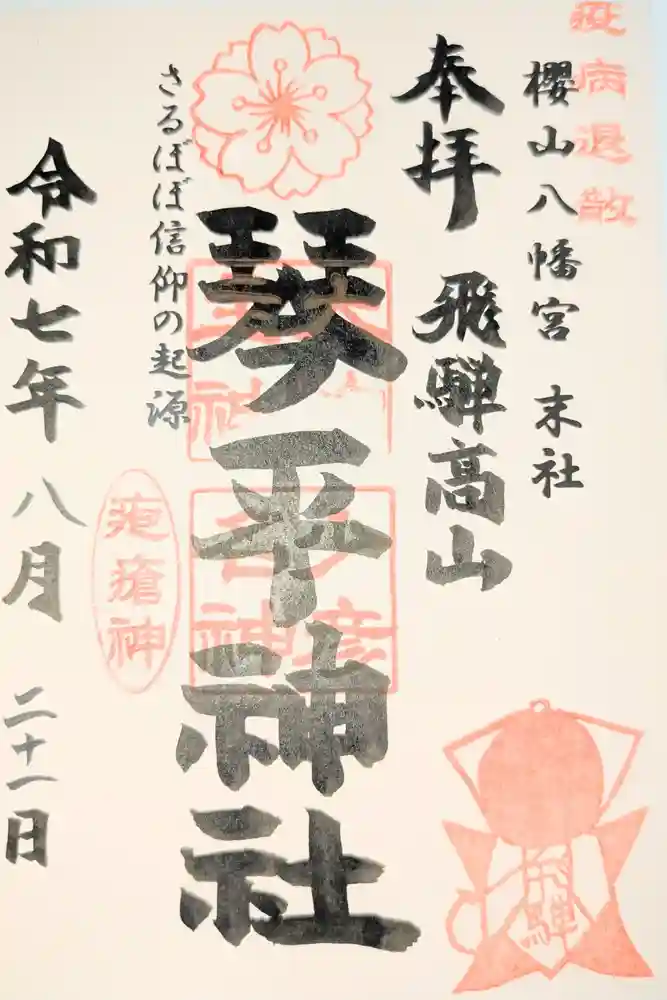 疫病退散
櫻山八幡宮 末社
奉拝 飛騨高山
琴平神社
さるぼぼ信仰の起源
疱瘡神
令和七年八月 二十一日
飛騨